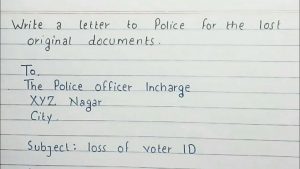 Write a letter to Police for the lost
original documents.
To,
The Police officer Incharge
XYZ Nagar
City.
Subject: loss of voter ID